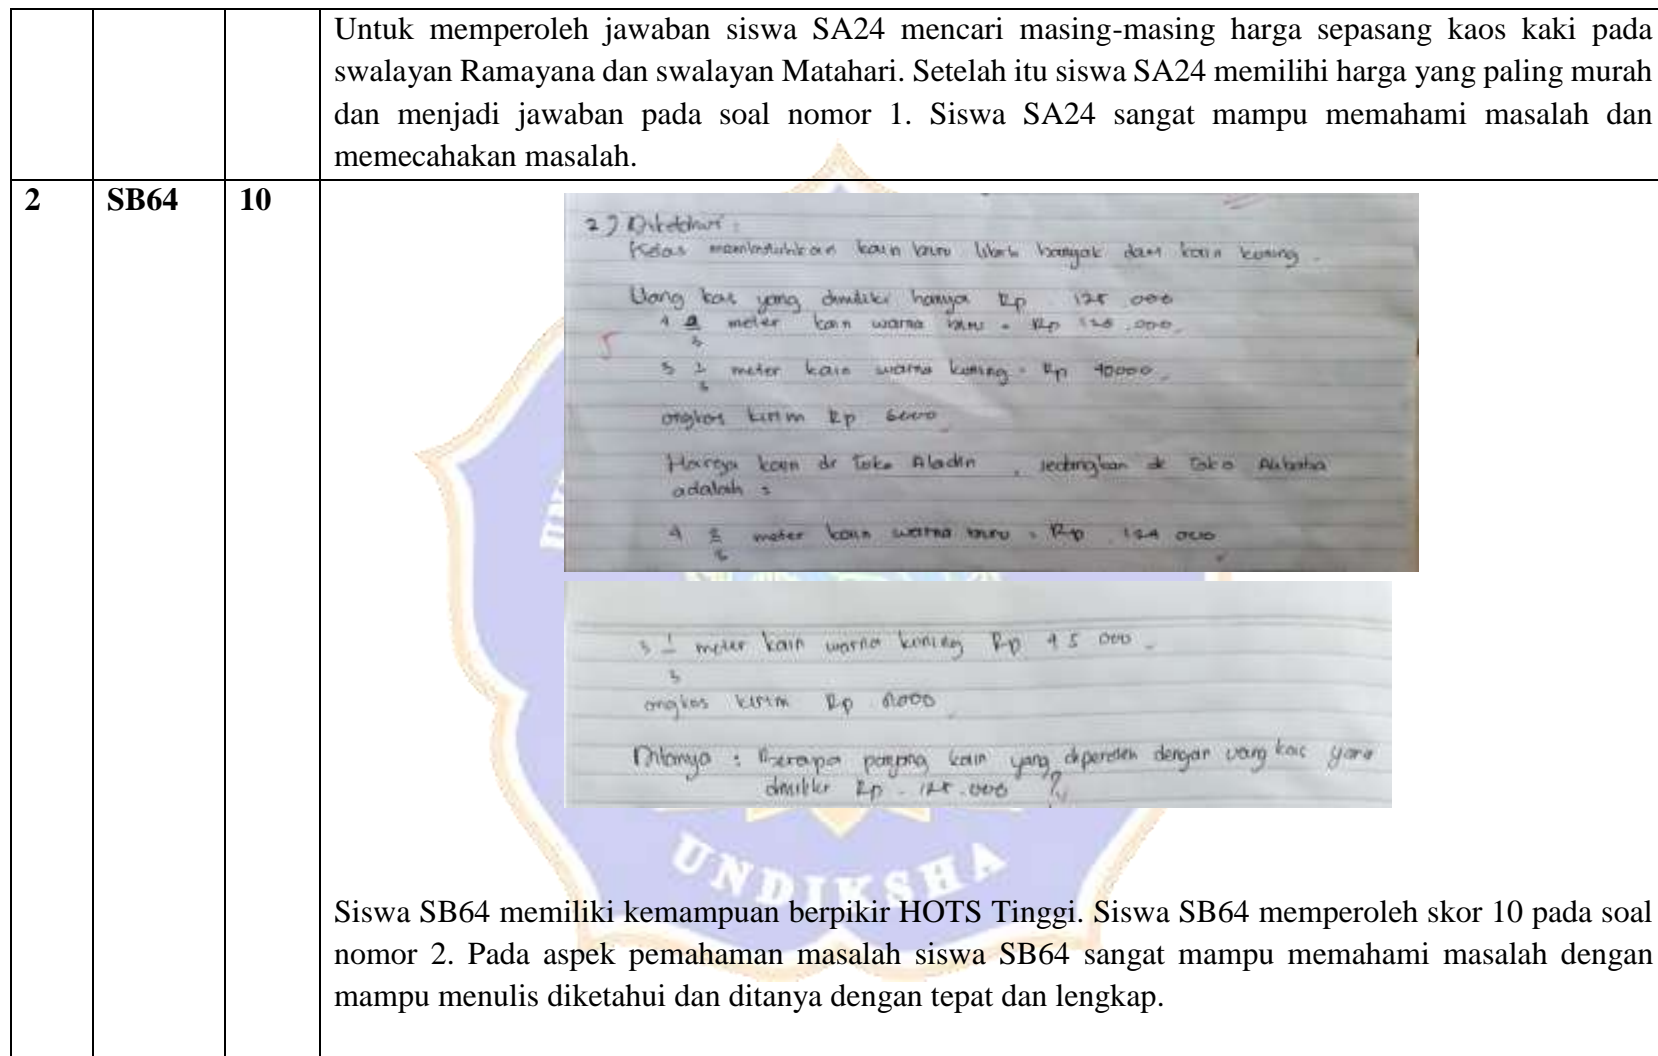 Untuk memperoleh jawaban siswa SA24 mencari masing-masing harga sepasang kaos kaki pada
swalayan Ramayana dan swalayan Matahari. Setelah itu siswa SA24 memilihi harga yang paling murah
dan menjadi jawaban pada soal nomor 1. Siswa SA24 sangat mampu memahami masalah dan
memecahakan masalah.
2 SB64 10
2) Diketahui :
Kelas membutuhkan kain biru lebih banyak dari kain kuning.
Uang kas yang dimiliki hanya Rp. 125 000
4 2/3 meter kain warna biru = Rp 000.
5
5 1/3 meter kain warna kuning = Rp 40000
ongkos kirim Rp 6000
Harga kain di Toko Aladin, sedangkan di Toko Alibaba
adalah :
4 2/3 meter kain warna biru = Rp. 124 000
1/3 meter kain warna kuning Rp 45 000
ongkos kirim Rp
Ditanya : Berapa panjang kain yang diperoleh dengan uang kas yang
dimiliki Rp. 125.000 ?
UNDIKSHA
Siswa SB64 memiliki kemampuan berpikir HOTS Tinggi. Siswa SB64 memperoleh skor 10 pada soal
nomor 2. Pada aspek pemahaman masalah siswa SB64 sangat mampu memahami masalah dengan
mampu menulis diketahui dan ditanya dengan tepat dan lengkap.